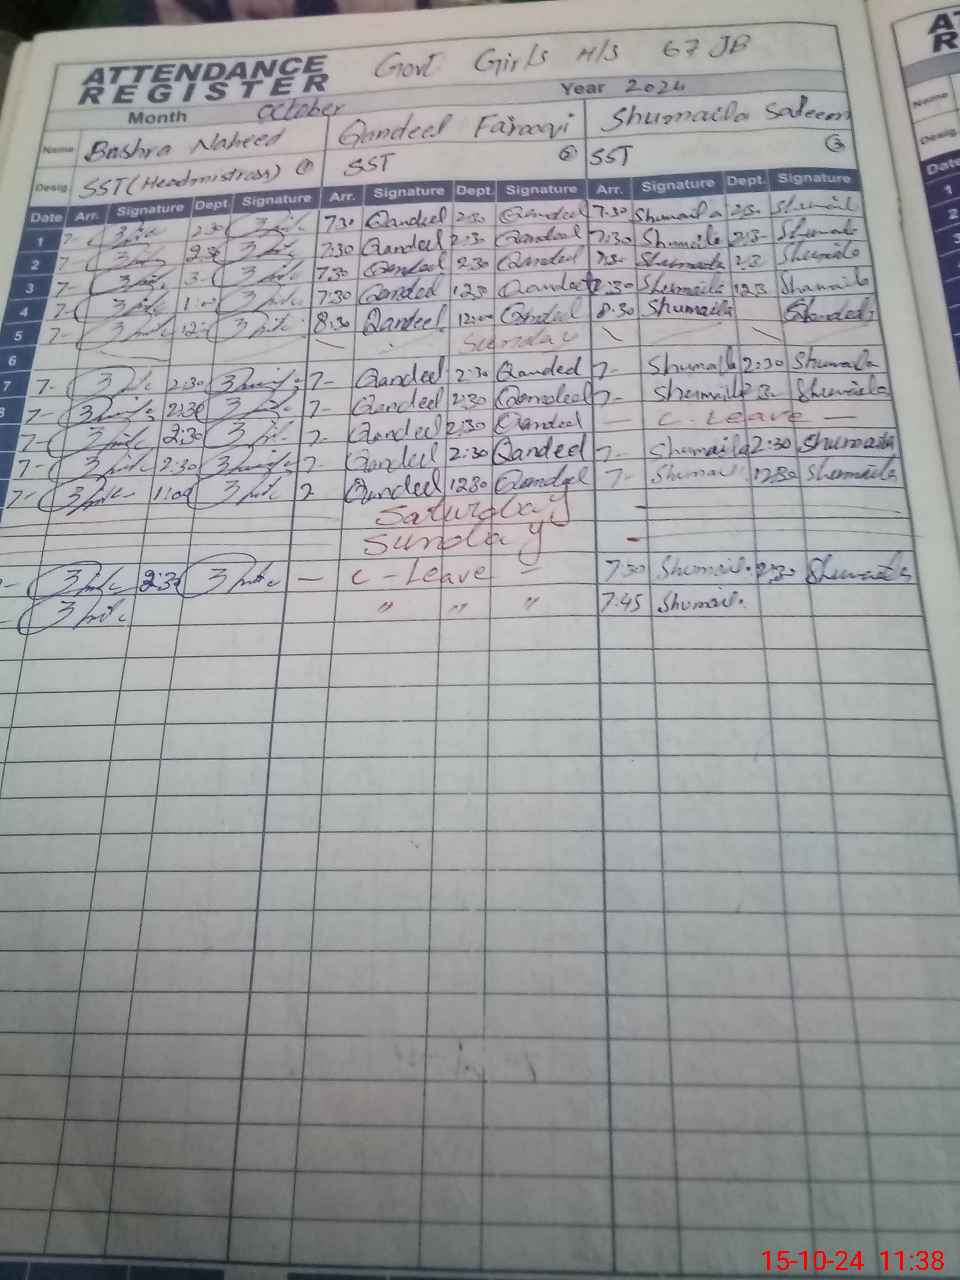 Govt Girls H/S 67 JB
ATTENDANCE
REGISTER
Month October Year 2024
Name Bushra Naheed Qandeel Farooqi Shumaila Saleem
Desig. SST (Headmistress) ① SST ② SST ③
Date Arr. Signature Dept. Signature Arr. Signature Dept. Signature Arr. Signature Dept. Signature
1 7- 2:30 7:30 Qandeel 2:30 Qandeel 7:30 Shumaila 2:30 Shumaila
2 7- 2:30 7:30 Qandeel 2:30 Qandeel 7:30 Shumaila 2:30 Shumaila
3 7- 3- 7:30 Qandeel 2:30 Qandeel 7:30 Shumaila 2:3 Shumaila
4 7- 1:00 7:30 Qandeel 12:30 Qandeel 7:30 Shumaila 12:3 Shumaila
5 7- 8:30 Qandeel 12:00 Qandeel 8:30 Shumaila
6 Sunday
7 7- 2:30 7- Qandeel 2:30 Qandeel 7- Shumaila 2:30 Shumaila
8 7- 2:30 7- Qandeel 2:30 Qandeel 7- Shumaila 2:3- Shumaila
7- 2:30 7- Qandeel 2:30 Qandeel — C. Leave —
7- 2:30 7- Qandeel 2:30 Qandeel 7- Shumaila 2:30 Shumaila
7- 1:00 7 Qandeel 12:30 Qandeel 7- Shumai 12:30 Shumaila
Saturday
Sunday
2:30 — C-Leave — 7:30 Shumail. 2:30 Shumaila
" " " 7:45 Shumail.
AT
R
Name
Desig.
Date
1
2
3
15-10-24 11:38